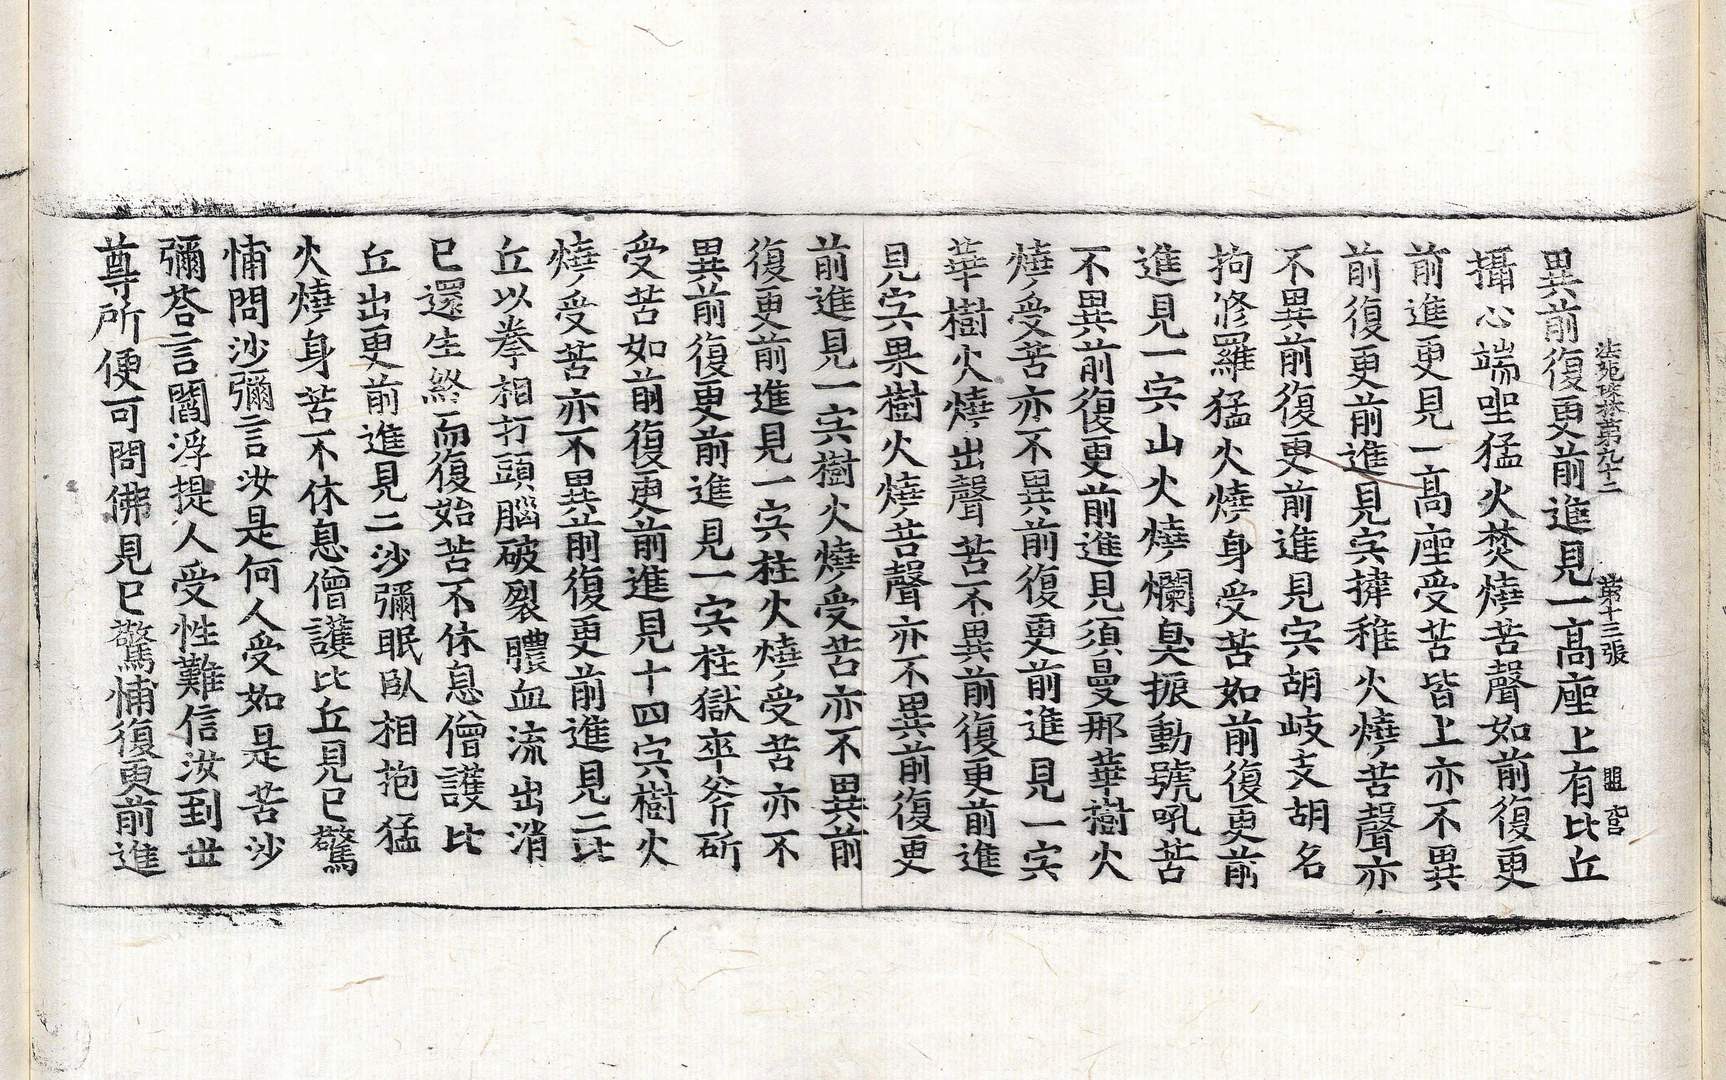 法苑珠林第九十二 第十三張 盟 宮
異前復更前進見一高座上有比丘
攝心端坐猛火焚燒苦聲如前復更
前進更見一高座受苦皆上亦不異
前復更前進見㝎揵稚火燒苦聲亦
不異前復更前進見㝎胡岐支胡名
拘修羅猛火燒身受苦如前復更前
進見一㝎山火燒爛臭振動號吼苦
不異前復更前進見須曼那華樹火
燒受苦亦不異前復更前進見一㝎
華樹火燒出聲苦不異前復更前進
見㝎果樹火燒苦聲亦不異前復更
前進見一㝎樹火燒受苦亦不異前
復更前進見一㝎柱火燒受苦亦不
異前復更前進見一㝎柱獄卒斧斫
受苦如前復更前進見十四㝎樹火
燒受苦亦不異前復更前進見二比
丘以拳相打頭腦破裂膿血流出消
已還生終而復始苦不休息僧護比
丘出更前進見二沙彌眠臥相抱猛
火燒身苦不休息僧護比丘見已驚
怖問沙彌言汝是何人受如是苦沙
彌荅言閻浮提人受性難信汝到世
尊所便可問佛見已驚怖復更前進